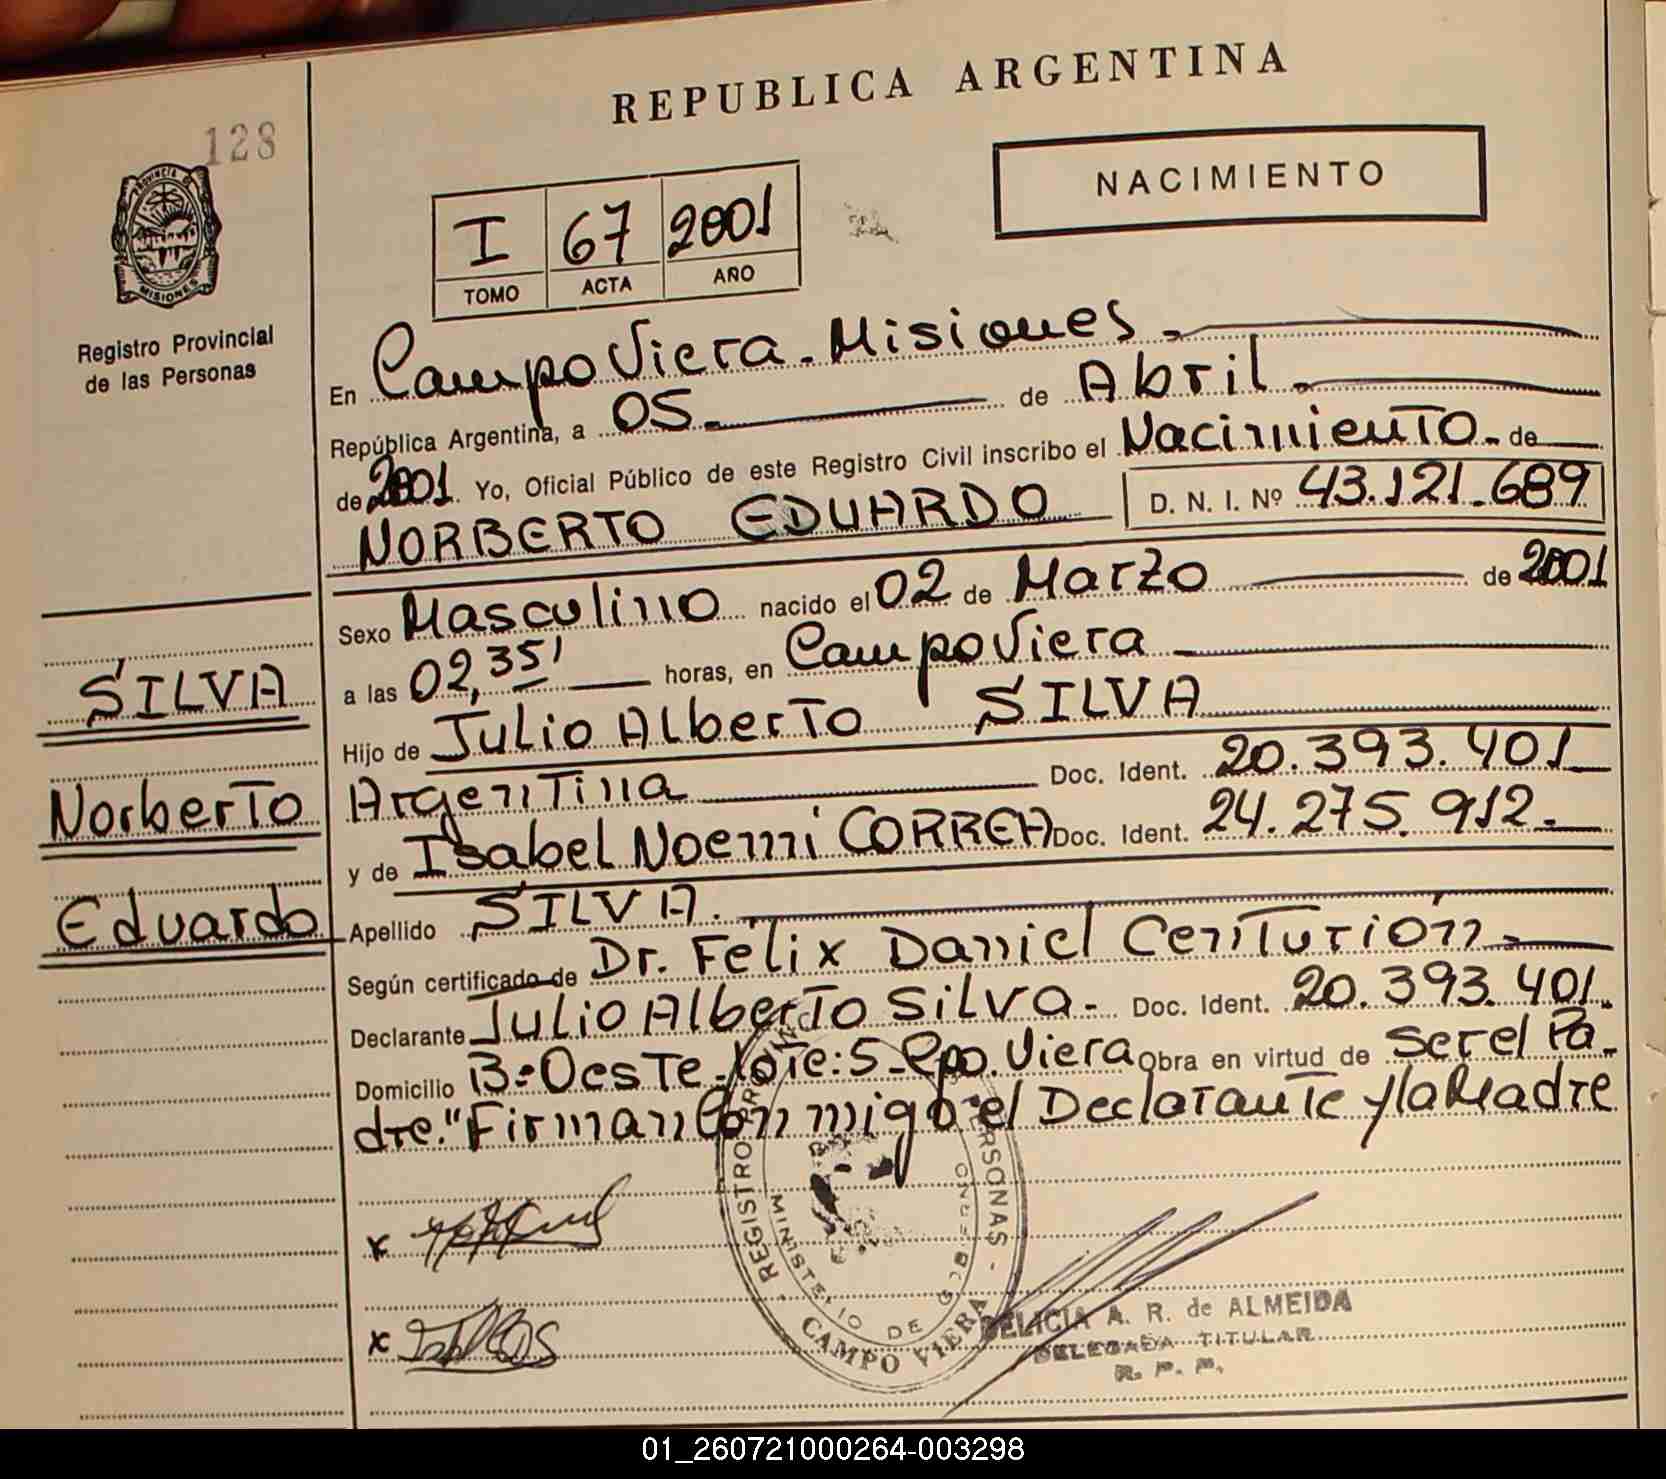 REPUBLICA ARGENTINA
128
NACIMIENTO
PROVINCIA DE MISIONES
I 67 2001
TOMO ACTA AÑO
Registro Provincial
de las Personas
En Campo Viera - Misiones.
República Argentina, a 05. de Abril.
de 2001. Yo, Oficial Público de este Registro Civil inscribo el Nacimiento. de
NORBERTO EDUARDO D. N. I. Nº 43.121.689
Sexo Masculino nacido el 02 de Marzo de 2001
a las 02,35' horas, en Campo Viera
SILVA
Hijo de Julio Alberto SILVA
Argentina Doc. Ident. 20.393.401
Norberto
y de Isabel Noemi CORREA Doc. Ident. 24.275.912.
Eduardo
Apellido SILVA.
Según certificado de Dr. Felix Daniel Centurión.
Declarante Julio Alberto Silva. Doc. Ident. 20.393.401.
Domicilio B:Oeste.lote:5.Cpo.Viera Obra en virtud de Ser el Pa-
dre."Firman Conmigo el Declarante y la Madre
x
x
REGISTRO PERSONAS - CAMPO VIERA
MINISTERIO DE GOBIERNO
DELICIA A. R. de ALMEIDA
DELEGADA TITULAR
R. P. P.
01_260721000264-003298